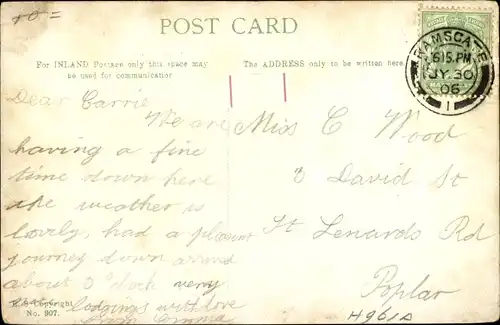 10 =
POST CARD
For INLAND Postage only this space may
be used for communication
The ADDRESS only to be written here.
RAMSGATE
6 15. PM
JY. 30
06
1
Dear Carrie
We are
having a fine
time down here
the weather is
lovely, had a pleasant
journey down arrived
about 3 o'clock very
lodgings with love
from Emma
Miss C Wood
3 David St
St Lenards Rd
Poplar
Copyright
No. 907.
4961A